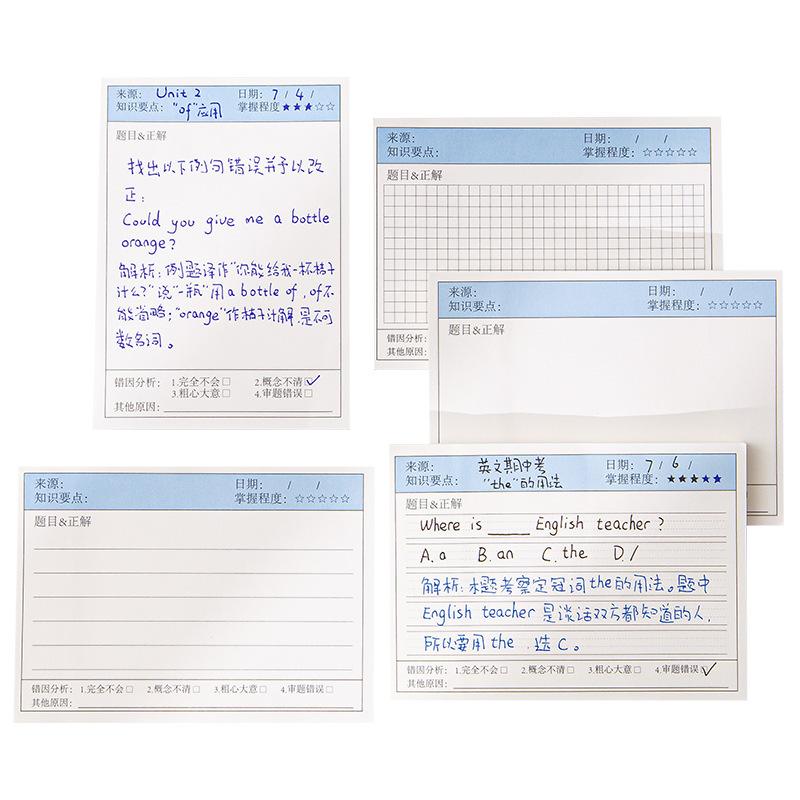 来源: Unit 2 日期: 7 / 4 /
知识要点: "of"应用 掌握程度★★★☆☆
题目&正解
找出以下例句错误并予以改
正:
Could you give me a bottle
orange?
解析: 例题译作"你能给我一杯桔子
汁么?"说"一瓶"用a bottle of, of不
能省略;"orange"作桔子汁解,是不可
数名词。
错因分析: 1.完全不会□ 2.概念不清☑
3.粗心大意□ 4.审题错误□
其他原因:
来源: 日期: / /
知识要点: 掌握程度: ☆☆☆☆☆
题目&正解
错因分析:
其他原因:
来源: 日期: / /
知识要点: 掌握程度: ☆☆☆☆☆
题目&正解
来源: 日期: / /
知识要点: 掌握程度: ☆☆☆☆☆
题目&正解
错因分析: 1.完全不会□ 2.概念不清□ 3.粗心大意□ 4.审题错误□
其他原因:
来源: 英文期中考 日期: 7 / 6 /
知识要点: "the"的用法 掌握程度: ★★★★★
题目&正解
Where is ____ English teacher?
A. a B. an C. the D. /
解析: 本题考察定冠词the的用法。题中
English teacher 是谈话双方都知道的人,
所以要用the, 选C。
错因分析: 1.完全不会□ 2.概念不清□ 3.粗心大意□ 4.审题错误☑
其他原因: